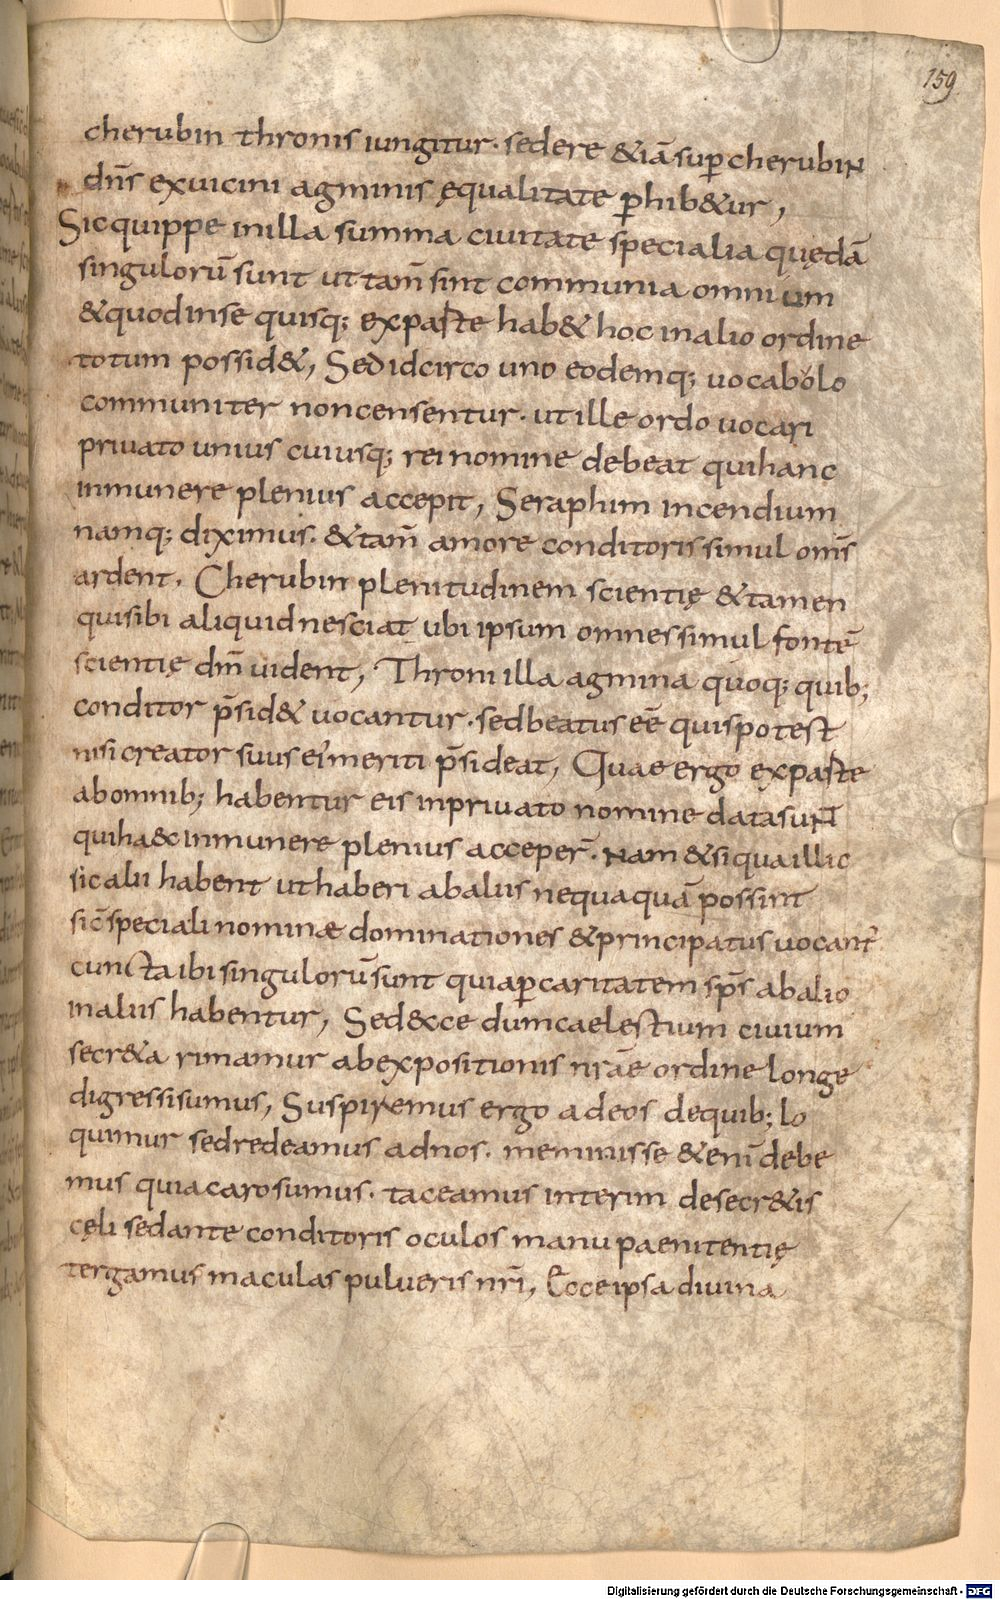 159
cherubin thronis iungitur· sedere &iā sup̄ cherubiN
dn̄s exuicini agminis ęqualitate ꝑhib&ur,
Sicquippe inilla summa ciuitate specialia quędā
singulorū sunt ut tam̄ sint communia omnium
&quodinse quisq; exparte hab& hoc inalio ordine
totum possid&, Sed idcirco uno eodemq; uocabolo
communiter noncensentur· ut ille ordo uocari
priuato unius cuiusq; rei nomine debeat quihanc
inmunere plenius accepit, Seraphim incendium
namq; diximus· &tam̄ amore conditoris simul om̄s
ardent. Cherubin plenitudinem scientię &tamen
quisibi aliquid nesciat ubi ipsum omnes simul fontē
scientię dm̄ uident, Throni illa agmina quoq; quib;
conditor p̄sid& uocantur· sedbeatus eē quis potest
nisi creator suus ei' meriti p̄sideat, Quae ergo exparte
abomnib; habentur eis inpriuato nomine datasuNT
quiha&c inmunere plenius acceper̄· Nam &siqua illic
sic alii habent ut haberi abaliis nequaquā possint
sic̄ speciali nominæ dominationes &principatus uocant̄
cuncta ibi singulorū sunt quiaꝑ caritatem sp̄s abalio
inaliis habentur, Sed&cce dumcaelestium ciuium
secr&a rimamur abexpositionis nr̄ae ordine longe
digressisumus, Suspiremus ergo adeos dequib; lo
quimur sedredeamus adnos· meminisse &eni̅ debe
mus quiacarosumus· taceamus interim desecr&is
cęli sedante conditoris oculos manu paenitentię
tergamus maculas pulueris nr̄i, Ecce ipsa diuina
Digitalisierung gefördert durch die Deutsche Forschungsgemeinschaft - DFG